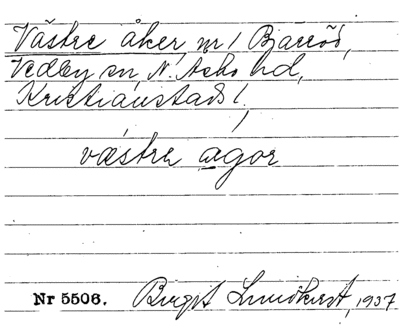 Västre åker, nr 1 Bjärröd,
Vedby sn, N. Åsbo hd,
Kristianstads l.
væstrɐ agor
Nr 5506. Birgit Lundkvist, 1937